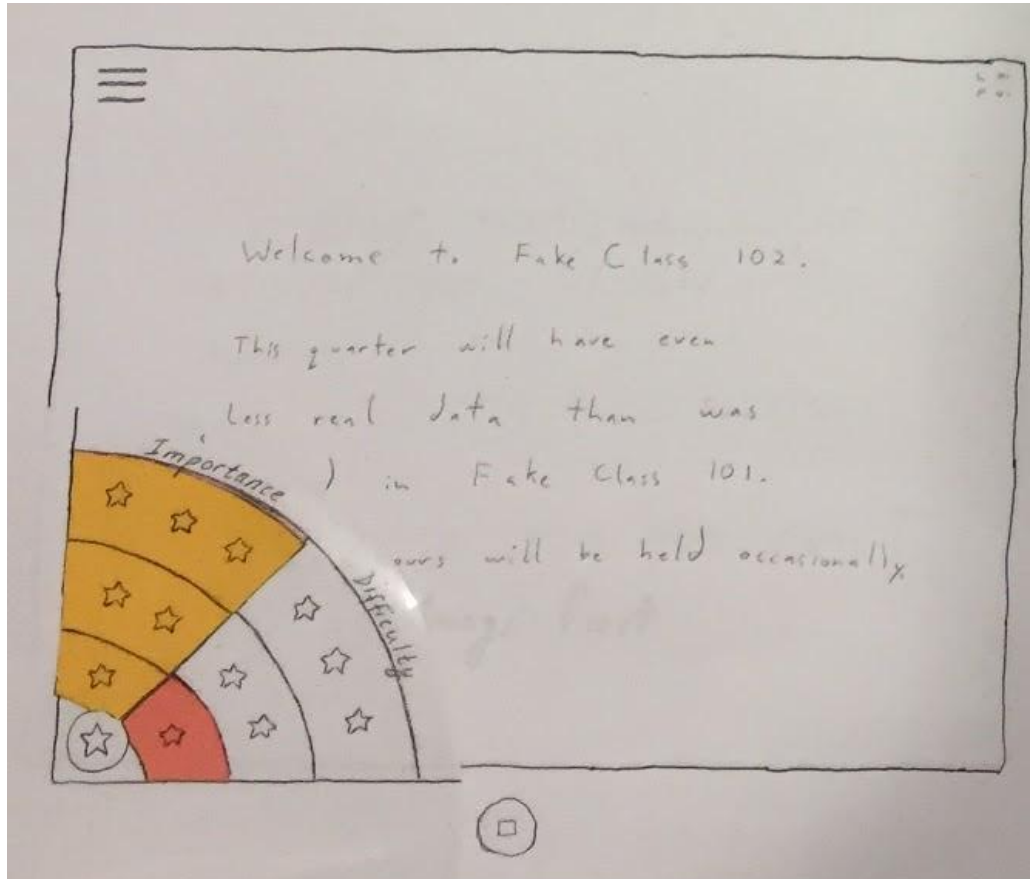 Welcome to Fake Class 102.
This quarter will have even
Less real data than was
) in Fake Class 101.
ours will be held occasionally.
Importance
Difficulty